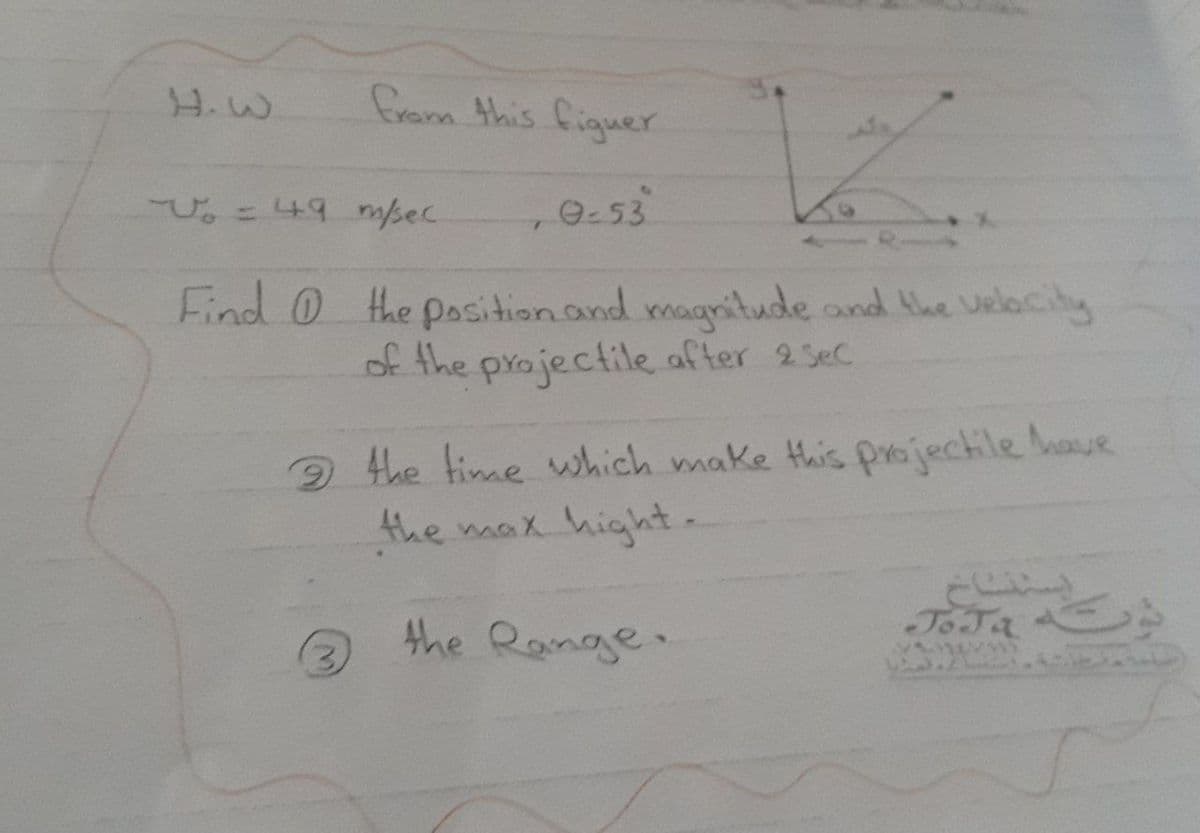 H.W from this figuer
y
v₀
θ
x
R
v₀ = 49 m/sec , θ=53°
Find ① the position and magnitude and the velocity
of the projectile after 2 sec
② the time which make this projectile have
the max hight.
③ the Range.
استنساخ
JoJa